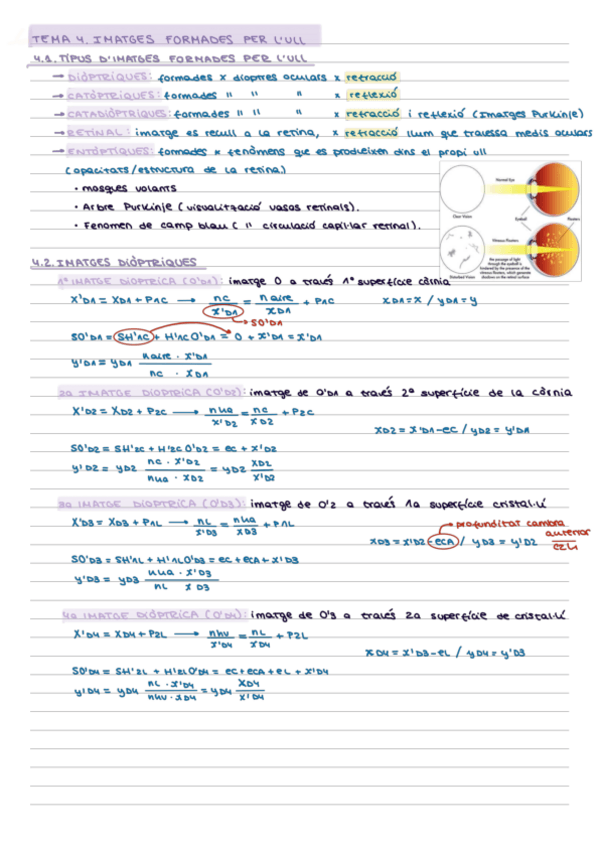 TEMA 4. IMATGES FORMADES PER L'ULL
4.1. TIPUS D'IMATGES FORMADES PER L'ULL
→ DIÒPTRIQUES: formades x dioptres oculars x refracció
→ CATÒPTRIQUES: formades " " " x reflexió
→ CATADIÒPTRIQUES: formades " " " x refracció i reflexió (Imatges Purkinje)
→ RETINAL: imatge es recull a la retina, x refracció llum que travessa medis oculars
→ ENTÒPTIQUES: formades x fenòmens que es produeixen dins el propi ull
(opacitats/estructura de la retina)
• mosques volants
• Arbre Purkinje (visualització vasos retinals).
• Fenomen de camp blau (" circulació capil·lar retinal).
Normal Eye
Clear Vision
Eyeball
Floaters
Vitreous Floaters
the passage of light
through the eyeball is
hindered by the presence of the
vitreous floaters, which generate
shadows on the retinal surface
Disturbed Vision
4.2. IMATGES DIÒPTRIQUES
1ª IMATGE DIÒPTRICA (O'D1): imatge O a través 1ª superfície còrnia
X'D1 = XD1 + P1C → nc / x'D1 = naire / xD1 + P1C xD1 = x / yD1 = y
SO'D1
SO'D1 = SH'1C + H'1C O'D1 = 0 + x'D1 = x'D1
y'D1 = yD1 naire · x'D1 / nc · xD1
2a IMATGE DIÒPTRICA (O'D2): imatge de O'D1 a través 2ª superfície de la còrnia
X'D2 = XD2 + P2C → nha / x'D2 = nc / xD2 + P2C
xD2 = x'D1 - ec / yD2 = y'D1
SO'D2 = SH'2C + H'2C O'D2 = ec + x'D2
y'D2 = yD2 nc · x'D2 / nha · xD2 = yD2 xD2 / x'D2
3a IMATGE DIÒPTRICA (O'D3): imatge de O'2 a través 1a superfície cristal·lí
X'D3 = XD3 + P1L → nL / x'D3 = nha / xD3 + P1L
profunditat cambra
anterior
xD3 = x'D2 - ecA / yD3 = y'D2
SO'D3 = SH'1L + H'1L O'D3 = ec + ecA + x'D3
y'D3 = yD3 nha · x'D3 / nL xD3
4a IMATGE DIÒPTRICA (O'D4): imatge de O'3 a través 2a superfície de cristal·lí
X'D4 = XD4 + P2L → nhv / x'D4 = nL / xD4 + P2L
xD4 = x'D3 - eL / yD4 = y'D3
SO'D4 = SH'2L + H'2L O'D4 = ec + ecA + eL + x'D4
y'D4 = yD4 nL · x'D4 / nhv · xD4 = yD4 xD4 / x'D4